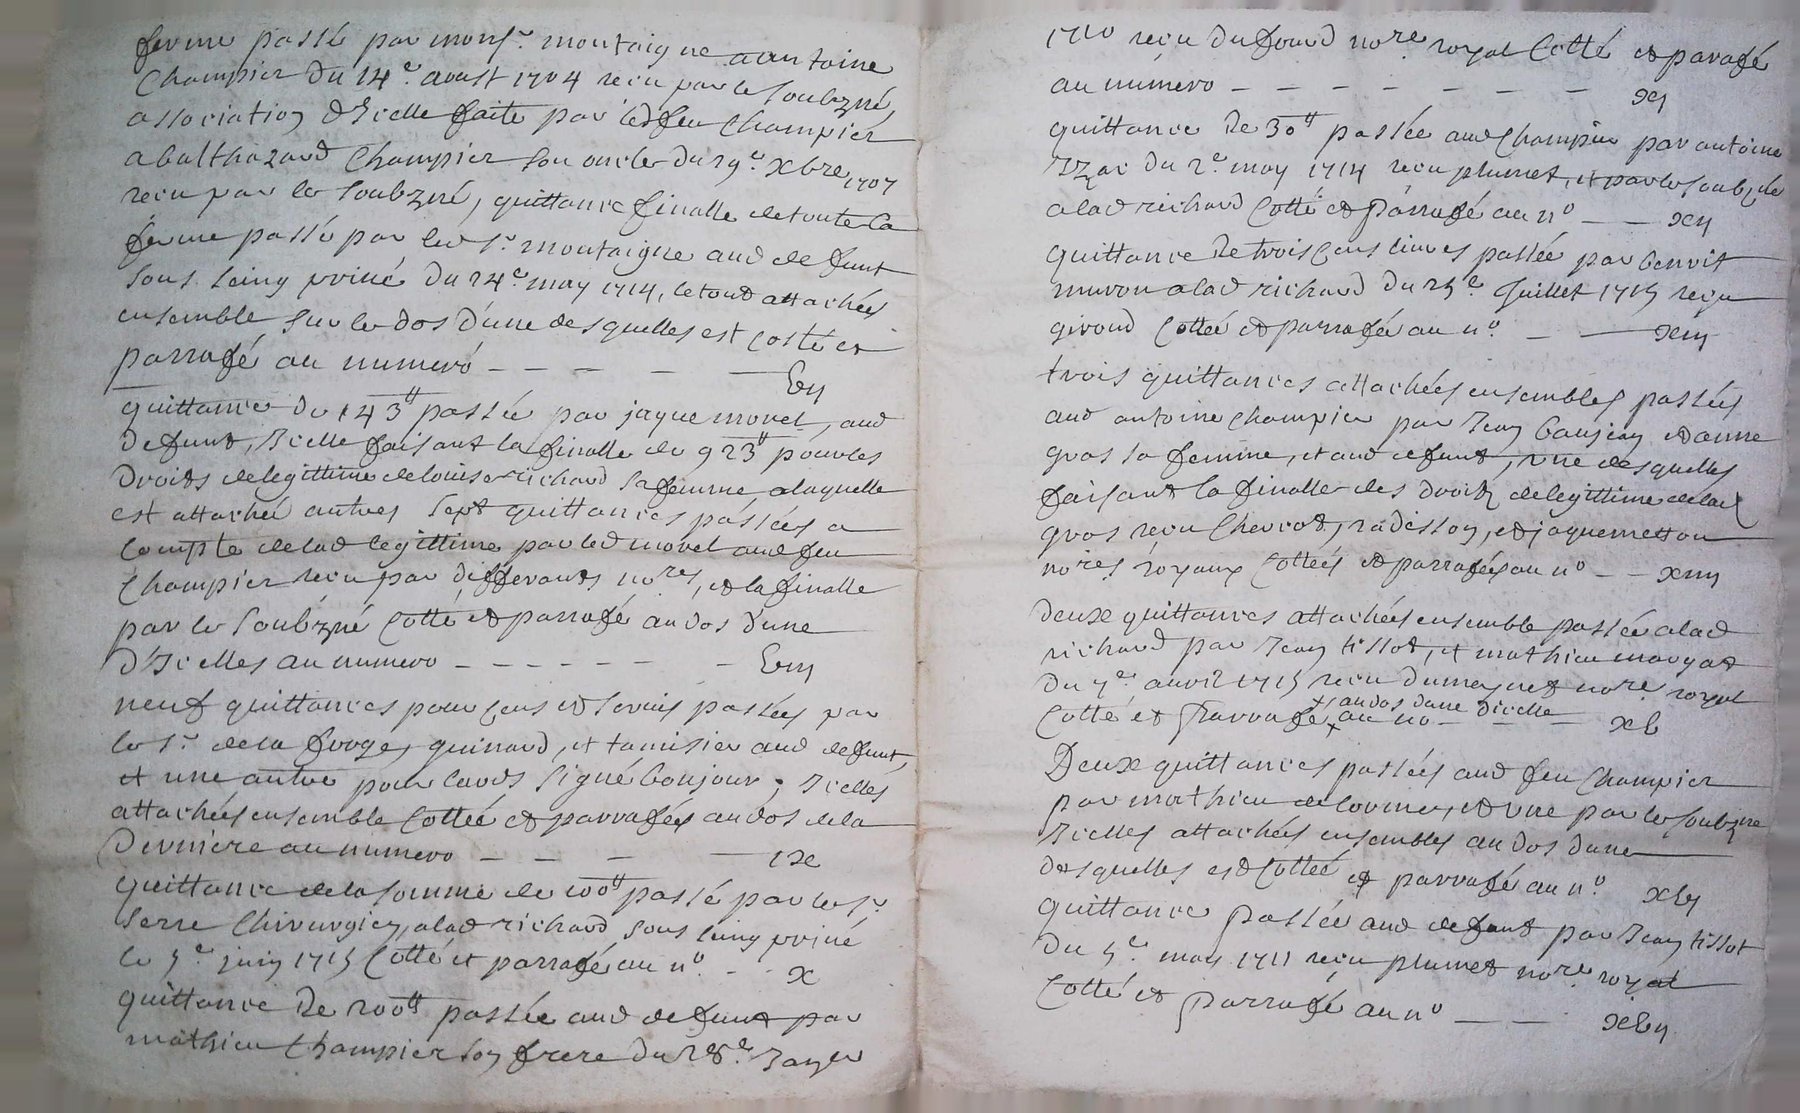 ferme passée par monsr. montaigne a antoine
Champier du 14e. aoust 1704 receu par le soubzné,
association d'Icelle faite par led feu Champier
a balthazard Champier son oncle du 29e. Xbre 1707
receu par le soubzné, quittance finalle de toute la
ferme passé par led sr. montaigne aud defunt
sous seing privé du 24e. may 1714, le tout attachées
ensemble sur le dos d'une desquelles est cotté et
parrafé au numeró - - - - - Vij
quittance de 143tt passée par jaque morel, aud
defunt, Icelle faisant la finalle de 923tt pour les
Droits de legittime de louise richard sa femme, a laquelle
est attachée autres sept quittances passées a
Compte de lad legittime par led morel aud feu
Champier receu par differants nores, et la finalle
par le soubzné Cotté et parrafé au dos d'une
D'Icelles au numero - - - - - - - Viij
neuf quittances pour cens et servis passées par
le sr. de la forge, guinard, et tamisier aud defunt,
et une autre pour lauds signé bonjour, Icelles
attachées ensemble Cottée et parrafées au dos de la
Derniere au numero - - - - ix
quittance de la somme de 100tt passé par le sr.
serre Chirurgien a lad richard sous seing privé
le 5e. juin 1715 Cotté et parrafé au no. - - x
quittance De 200tt passée aud defunt par
mathieu Champier son frere du 28e. Janvier
1710 receu dufourd nore. royal Cotté et parafé
au numero - - - - - - - xj
quittance De 30tt passée aud Champier par antoine
Izac du 2e. may 1714 receu plumet, et par le soubzné
a lad richard Cotté et parrafé au no - - xij
quittance De trois cens livres passée par benoit
muron a lad richard du 25e. Juillet 1715 receu
giroud Cottée et parrafée au no - - xiij
trois quittances attachées ensembles passées
aud antoine Champier par Jean baujean et anne
gras sa femme, et aud defunt, une desquelles
faisant la finalle des droits de legittime de lad
gras receu Chercot, radisson, et jaquemetton
nores royaux Cottées et parrafées au no - - xiiij
Deux quittances attachées ensemble passée a lad
richard par Jean tissot, et mathieu margat
du 7e. avril 1715 receu dumeynet nore royal
+ au dos d'une d'icelle
Cotté et parrafé, + au no - - - - xv
Deux quittances passées aud feu Champier
par mathieu delorme, et une par le soubzné
Icelles attachées ensembles au dos d'une
desquelles est Cottée et parrafé au no. xvj
quittance passée aud defunt par Jean tissot
du 5e. may 1711 receu plumet nore royal
Cotté et parrafé au no - - xvij